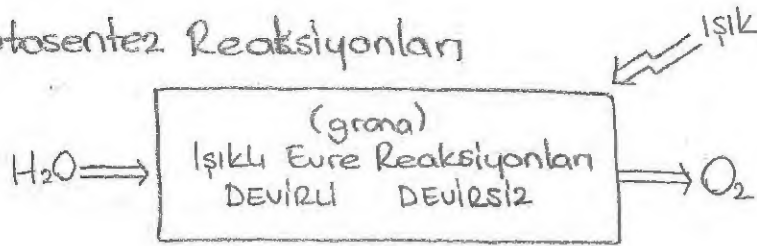 otosentez Reaksiyonları
Işık
(grana)
H₂O
Işıklı Evre Reaksiyonları
DEVİRLİ DEVİRSİZ
O₂